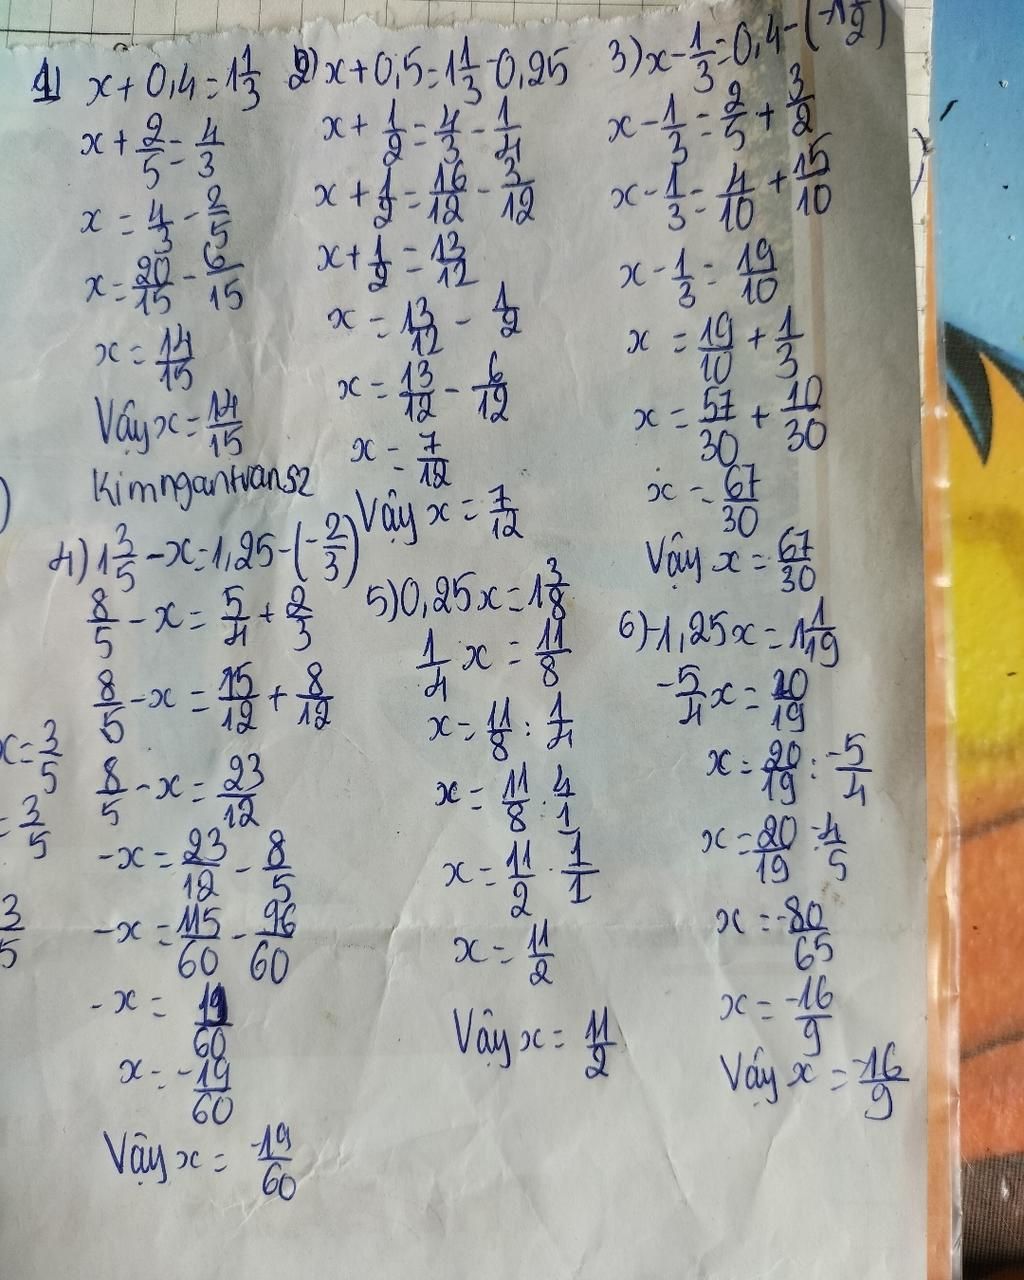 1) x + 0,4 = 1 1/3
x + 2/5 = 4/3
x = 4/3 - 2/5
x = 20/15 - 6/15
x = 14/15
Vậy x = 14/15
Kimngantransz
2) x + 0,5 = 1 1/3 - 0,25
x + 1/2 = 4/3 - 1/4
x + 1/2 = 16/12 - 3/12
x + 1/2 = 13/12
x = 13/12 - 1/2
x = 13/12 - 6/12
x = 7/12
Vậy x = 7/12
3) x - 1/3 = 0,4 - (-1 1/2)
x - 1/3 = 2/5 + 3/2
x - 1/3 = 4/10 + 15/10
x - 1/3 = 19/10
x = 19/10 + 1/3
x = 57/30 + 10/30
x = 67/30
Vậy x = 67/30
4) 1 3/5 - x = 1,25 - (-2/3)
8/5 - x = 5/4 + 2/3
8/5 - x = 15/12 + 8/12
8/5 - x = 23/12
-x = 23/12 - 8/5
-x = 115/60 - 96/60
-x = 19/60
x = -19/60
Vậy x = -19/60
5) 0,25x = 1 3/8
1/4 x = 11/8
x = 11/8 : 1/4
x = 11/8 . 4/1
x = 11/2 . 1/1
x = 11/2
Vậy x = 11/2
6) -1,25x = 1 1/19
-5/4 x = 20/19
x = 20/19 : -5/4
x = 20/19 . -4/5
x = -80/65
x = -16/9
Vậy x = -16/9
x = 3/5
= 3/5
3/5